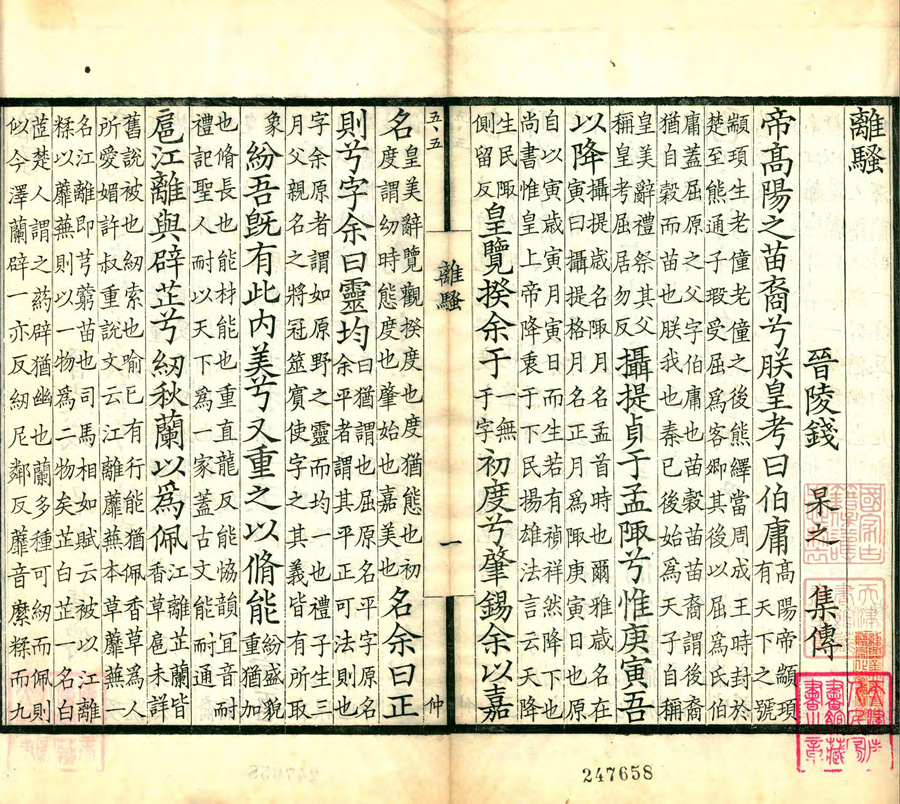 離騷
晉陵錢 杲之 集傳
帝高陽之苗裔兮朕皇考曰伯庸
高陽帝顓頊
有天下之號
顓頊生老僮老僮之後熊繹當周成王時封於
楚至熊通子瑕受屈為客卿其後以屈為氏伯
庸蓋屈原之父字伯庸也苗穀苗裔謂後裔
猶自穀而苗也朕我也秦已後始為天子自稱
皇美辭禮祭其父
稱皇考屈居勿反
攝提貞于孟陬兮惟庚寅吾
以降
攝提歲名陬月名孟首時也爾雅歲名在
寅曰攝提格月名正月為陬庚寅日也原
自以寅歲寅月寅日而生若有禎祥然降下也
尚書惟皇上帝降衷于下民揚雄法言云天降
生民陬
側留反
皇覽揆余于
一無
于字
初度兮肇錫余以嘉
五、五
離騷
一
仲
名
皇美辭覽觀揆度也度猶態也初
度謂幼時態度也肇始也嘉美也
名余曰正
則兮字余曰靈均
曰猶謂也屈原名平字原名
余平者謂其平正可法則也
字余原者謂如原野之靈而均一也禮子生三
月父親名之將冠筮賓使字之其義皆有所取
象
紛吾旣有此內美兮又重之以脩能
紛盛貌
重猶加
也脩長也能材能也重直龍反能協韻冝音耐
禮記聖人耐以天下為一家蓋古文能耐通
扈江離與辟芷兮紉秋蘭以爲佩
江離芷蘭皆
香草扈未詳
舊說被也紉索也喻已有行能猶佩香草為人
所愛媚許叔重說文云江離蘼蕪本草蘼蕪一
名江離即芎藭苗也司馬相如賦云被以江離
糅以蘼蕪則以一物為二物矣芷白芷一名白
茝楚人謂之葯辟猶幽也蘭多種可紉而佩則
似今澤蘭辟一亦反紉尼鄰反蘼音縻糅而九
247658